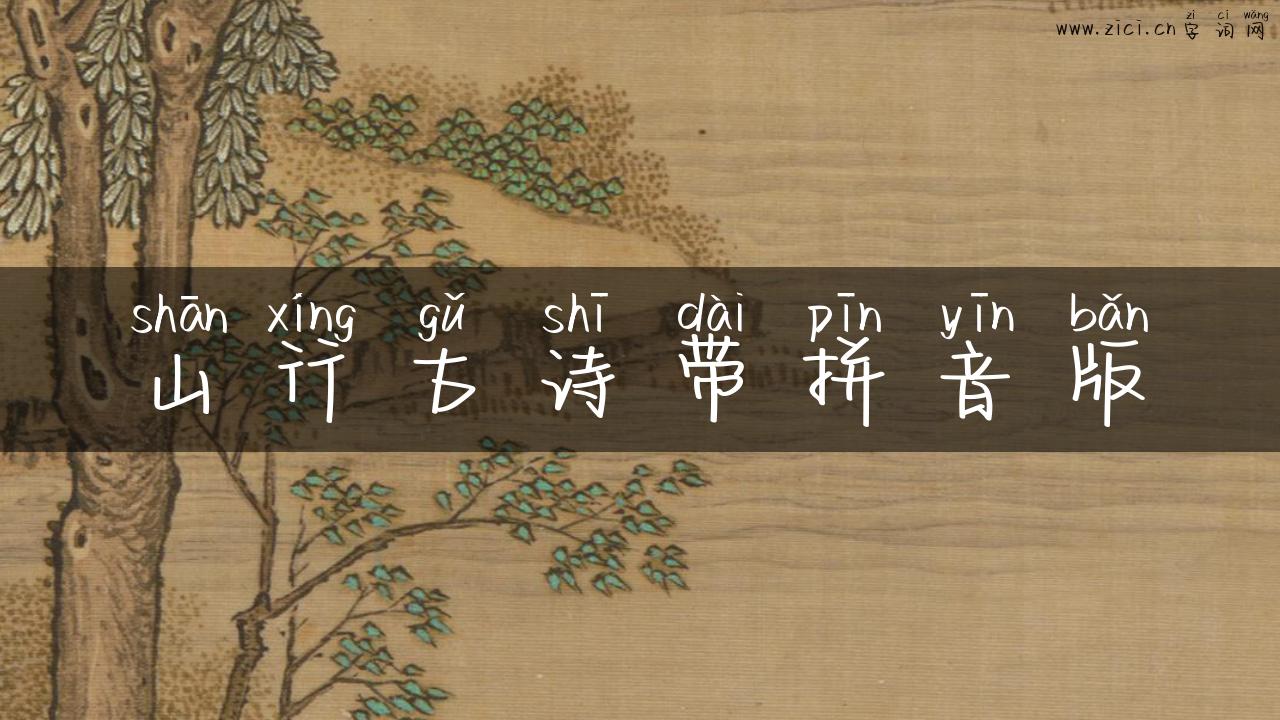 www.zici.cn 字词网
zì cí wǎng
shān xíng gǔ shī dài pīn yīn bǎn
山行古诗带拼音版